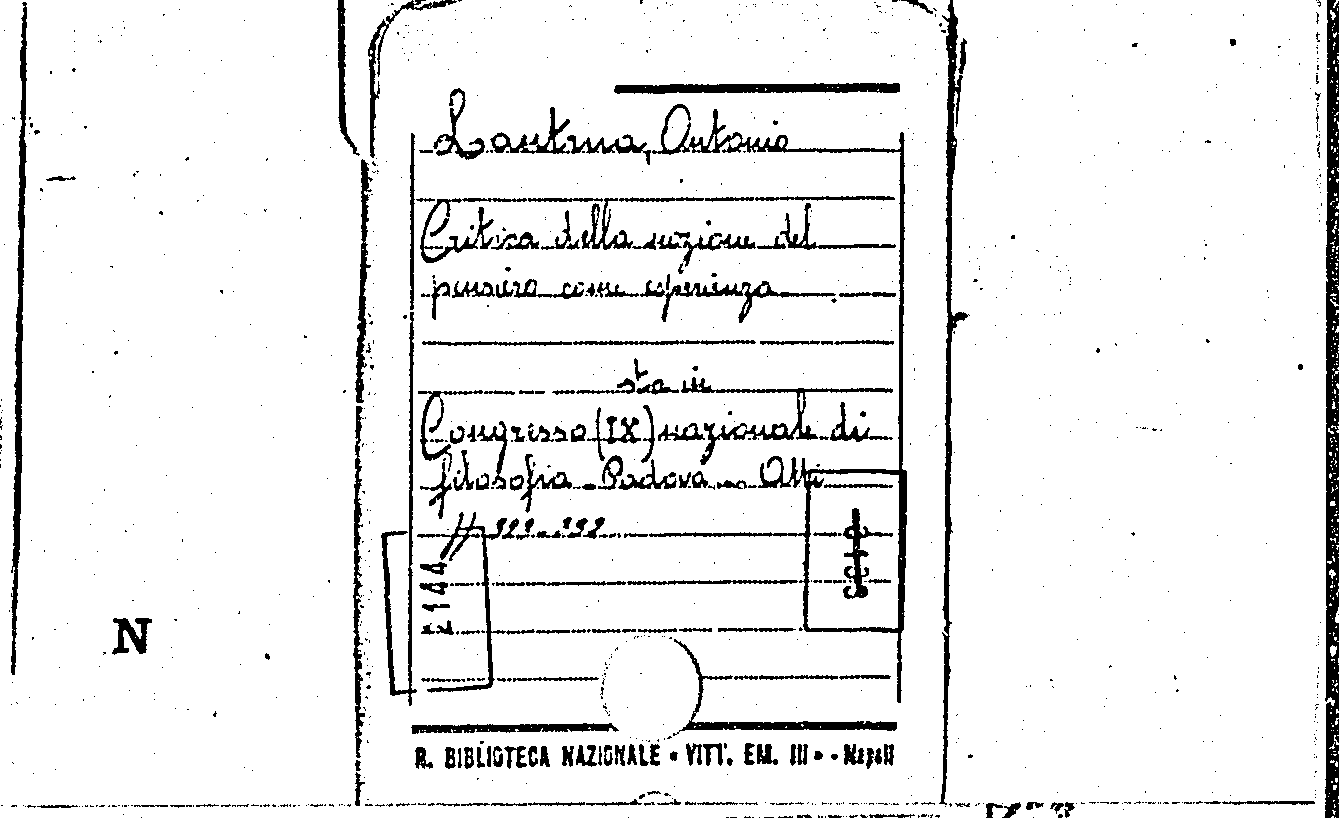 Lantrua, Antonio
Critica della nozione del
pensiero come esperienza
sta in
Congresso (IX) nazionale di
filosofia - Padova - Atti
N
R. BIBLIOTECA NAZIONALE « VITT. EM. III » - Napoli